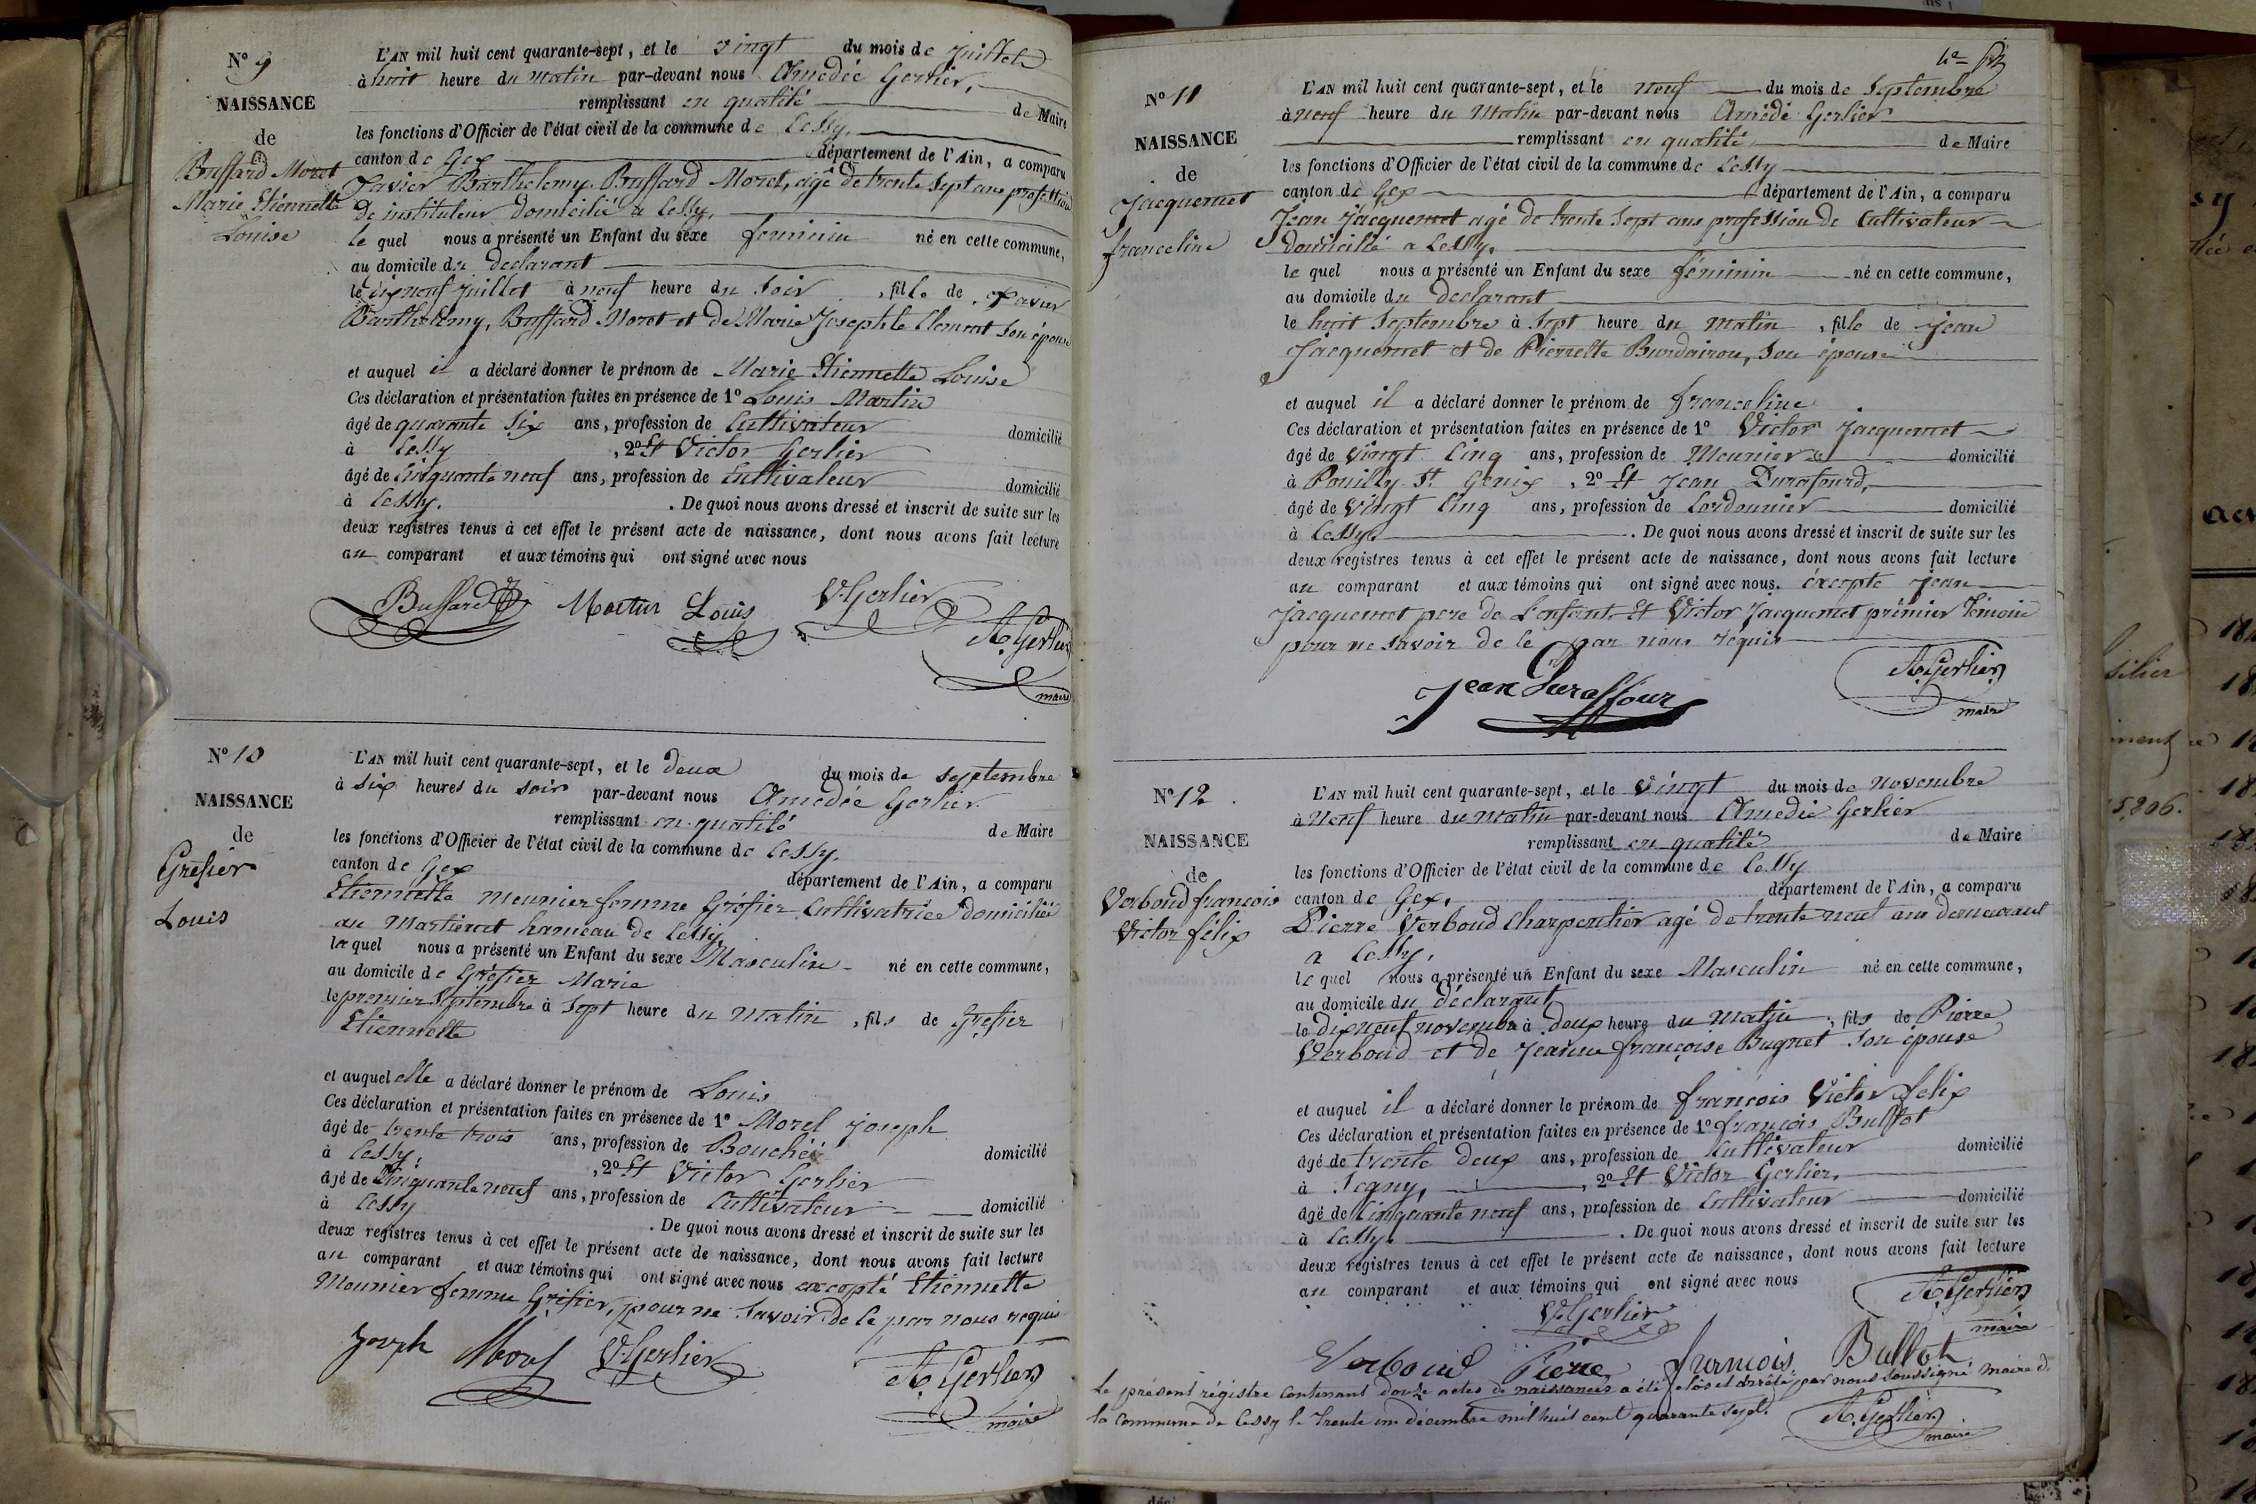 N° 9
NAISSANCE
de
Buffard Moret
Marie Etiennette
Louise
L'AN mil huit cent quarante-sept, et le vingt du mois de Juillet
à huit heure du matin par-devant nous Amedée Gerlier,
remplissant en qualité de Maire
les fonctions d'Officier de l'état civil de la commune de Cessy,
canton de Gex département de l'Ain, a comparu
Xavier Barthelemy Buffard Moret, agé de trente sept ans profession
de instituteur domicilié a Cessy,
le quel nous a présenté un Enfant du sexe feminin né en cette commune,
au domicile du declarant
le dix neuf Juillet à neuf heure du soir, fille de Xavier
Barthelémy, Buffard Moret et de Marie Josephte Clement son épouse
et auquel il a déclaré donner le prénom de Marie Etiennette Louise
Ces déclaration et présentation faites en présence de 1° Louis Martin
âgé de quarante six ans, profession de Cultivateur domicilié
à Cessy, 2° Et Victor Gerlier
âgé de Cinquante neuf ans, profession de Cultivateur domicilié
à Cessy. . De quoi nous avons dressé et inscrit de suite sur les
deux registres tenus à cet effet le présent acte de naissance, dont nous avons fait lecture
au comparant et aux témoins qui ont signé avec nous
Buffard Martin Louis V. Gerlier
A. Gerlier
maire
N° 10
NAISSANCE
de
Gréfier
Louis
L'AN mil huit cent quarante-sept, et le deux du mois de septembre
à six heures du soir par-devant nous Amedée Gerlier
remplissant en qualité de Maire
les fonctions d'Officier de l'état civil de la commune de Cessy,
canton de Gex département de l'Ain, a comparu
Etiennette Meunier femme Gréfier Cultivatrice domiciliée
au Martinet hameau de Cessy
la quel nous a présenté un Enfant du sexe Masculin né en cette commune,
au domicile de Gréfier Marie
le premier Septembre à Sept heure du Matin, fils de Grefier
Etiennette
et auquel elle a déclaré donner le prénom de Louis
Ces déclaration et présentation faites en présence de 1° Morel Joseph
âgé de trente trois ans, profession de Bouchér domicilié
à Cessy, 2° Et Victor Gerlier
âgé de Cinquante neuf ans, profession de Cultivateur domicilié
à Cessy . De quoi nous avons dressé et inscrit de suite sur les
deux registres tenus à cet effet le présent acte de naissance, dont nous avons fait lecture
au comparant et aux témoins qui ont signé avec nous excepté Etiennette
Meunier femme Gréfier, pour ne Savoir de le par nous requis
Joseph V. Gerlier
A. Gerlier
maire
N° 11
NAISSANCE
de
Jacquemet
franceline
L'AN mil huit cent quarante-sept, et le neuf du mois de Septembre
à neuf heure du Matin par-devant nous Amédé Gerlier
remplissant en qualité de Maire
les fonctions d'Officier de l'état civil de la commune de Cessy
canton de Gex département de l'Ain, a comparu
Jean Jacquemet agé de trente Sept ans profession de Cultivateur
domicilié a Cessy,
le quel nous a présenté un Enfant du sexe féminin né en cette commune,
au domicile du declarant
le huit Septembre à Sept heure du matin, fille de Jean
Jacquemet et de Pierrette Burdairon, Son épouse
et auquel il a déclaré donner le prénom de franceline
Ces déclaration et présentation faites en présence de 1° Victor Jacquemet
âgé de Vingt Cinq ans, profession de Meunier domicilié
à Pouilly St Genix, 2° Et Jean Durafourd,
âgé de Vingt Cinq ans, profession de Cordonnier domicilié
à Cessy . De quoi nous avons dressé et inscrit de suite sur les
deux registres tenus à cet effet le présent acte de naissance, dont nous avons fait lecture
au comparant et aux témoins qui ont signé avec nous. excepte Jean
Jacquemet pere de L'enfant Et Victor Jacquemet prémier Témoin
pour ne savoir de le par nous requis
Jean Duraffour
A. Gerlier
maire
N° 12
NAISSANCE
de
Verboud francois
Victor félix
L'AN mil huit cent quarante-sept, et le Vingt du mois de Novembre
à Neuf heure du matin par-devant nous Amedée Gerlier
remplissant en qualité de Maire
les fonctions d'Officier de l'état civil de la commune de Cessy
canton de Gex, département de l'Ain, a comparu
Pierre Verboud Charpentier agé de trente neuf ans demeurant
a Cessy,
le quel nous a présenté un Enfant du sexe Masculin né en cette commune,
au domicile du déclarant
le dix neuf novembre à deux heure du Matin, fils de Pierre
Verboud et de Jeanne françoise Bugnet Son épouse
et auquel il a déclaré donner le prénom de françois Victor felix
Ces déclaration et présentation faites en présence de 1° françois Bullot
âgé de trente deux ans, profession de Cultivateur domicilié
à Segny, 2° Et Victor Gerlier,
âgé de Cinquante neuf ans, profession de Cultivateur domicilié
à Cessy . De quoi nous avons dressé et inscrit de suite sur les
deux registres tenus à cet effet le présent acte de naissance, dont nous avons fait lecture
au comparant et aux témoins qui ont signé avec nous
A. Gerlier
maire
V. Gerlier
Verboud Pierre françois Bullot
Le présent régistre contenant douze actes de naissances a été clos et arrêté par nous soussigné maire de
la commune de Cessy le trente un décembre mil huit cent quarante sept.
A. Gerlier
maire